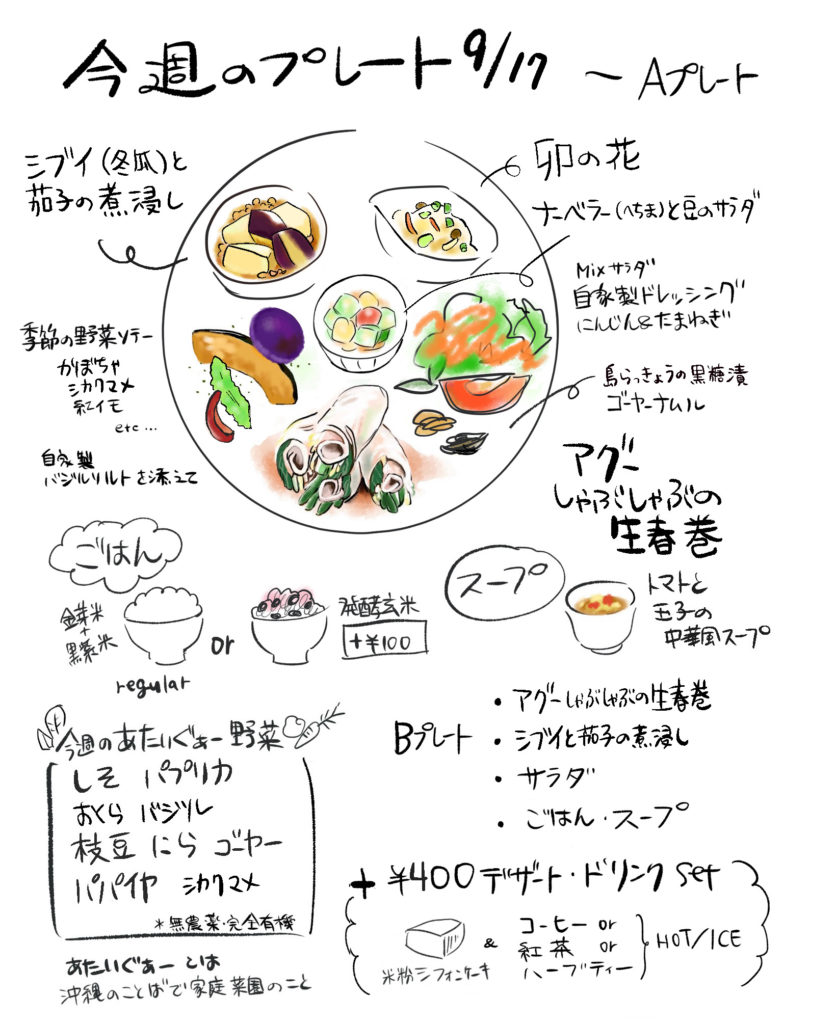 今週のプレート9/17 〜Aプレート
シブイ(冬瓜)と
茄子の煮浸し
卯の花
ナーベラー(へちま)と豆のサラダ
Mixサラダ
自家製ドレッシング
にんじん&たまねぎ
季節の野菜ソテー
かぼちゃ
シカクマメ
紅イモ
etc...
自家製
バジルソルトを添えて
島らっきょうの黒糖漬
ゴーヤーナムル
アグー
しゃぶしゃぶの
生春巻
ごはん
金芽米
+
黒紫米
regular
or
発酵玄米
+¥100
スープ
トマトと
玉子の
中華風スープ
今週のあたいぐゎー野菜
しそ パプリカ
おくら バジル
枝豆 にら ゴーヤー
パパイヤ シカクマメ
*無農薬・完全有機
あたいぐゎーとは
沖縄のことばで家庭菜園のこと
Bプレート
・アグーしゃぶしゃぶの生春巻
・シブイと茄子の煮浸し
・サラダ
・ごはん・スープ
+ ¥400 デザート・ドリンク set
米粉シフォンケーキ
&
コーヒー or
紅茶 or
ハーブティー
HOT/ICE